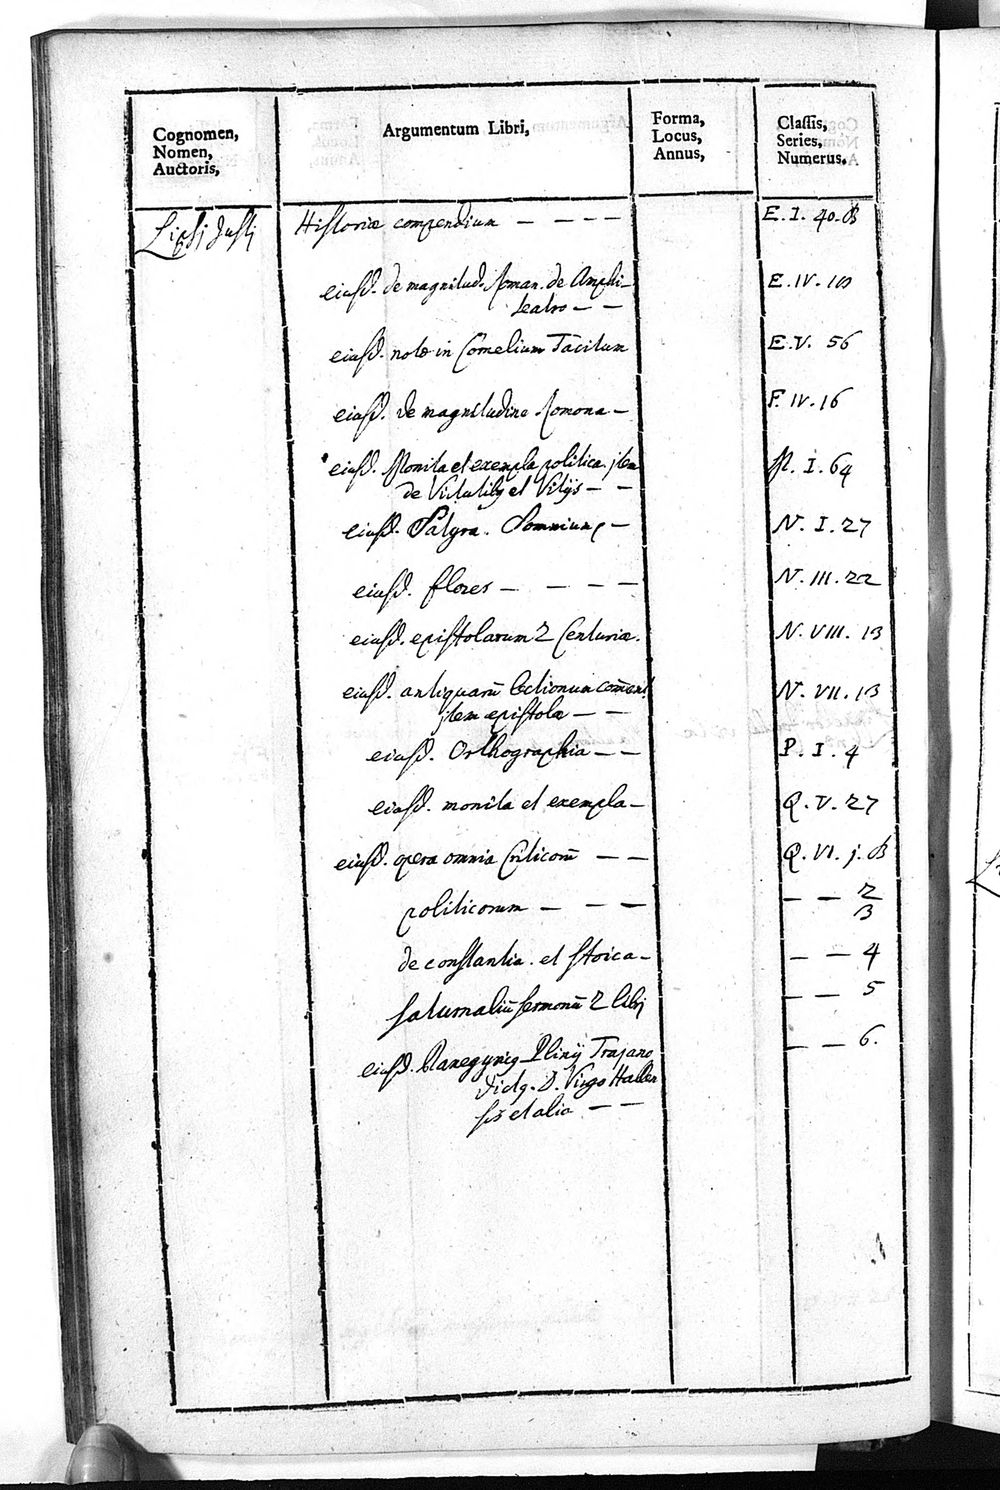 Cognomen,
Nomen,
Auctoris,
Argumentum Libri,
Forma,
Locus,
Annus,
Classis,
Series,
Numerus.
Lipsj Justj
Historiæ compendium — — — — E. I. 40. B
eiusd. de magnitud. Roman. de Amphi- E. IV. 10
teatro — —
eiusd. notæ in Cornelium Tacitum E. V. 56
eiusd. de magnitudine Romona — F. IV. 16
eiusd. Monita et exempla politica. jtem M. I. 64
de Virtutibq et Vitijs — —
eiusd. Satyra. Somnium — N. I. 27
eiusd. flores — — — — N. III. 22
eiusd. epistolarum 2 Centuriæ. N. VIII. 13
eiusd. antiquarū lectionum com̄ent N. VII. 13
jtem epistolæ — —
eiusd. Orthographia — — P. I. 4
eiusd. monita et exempla — Q. V. 27
eiusd. opera omnia Criticorū — — Q. VI. j. B
politicorum — — — — — 2
3
de constantia. et stoica — — — 4
saturnaliū sermonū 2 libj — — 5
eiusd. Panegyricq Plinij Trajano — — 6.
dictq. D. Virgo Hallen
sis et alia — —